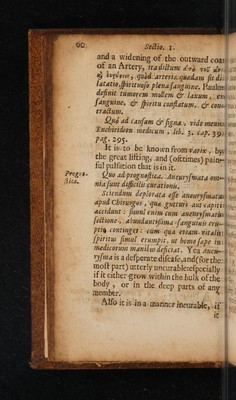 60 Sectio. 1.
and a widening of the outward coat
of an Artery,
quòd arteriæ quædam sit di-
latatio, spirituosi plena sanguine. Paulus
definit tumorem mollem & laxum, ex
sanguine, & spiritu conflatum, &
tractum.
Quò ad causam & signa, vide meum
Enchiridion medicum, lib. 3. cap. 39.
pag. 295.
It is to be known from varix, by
the great lifting, and (oftimes) pain-
ful pulsation that is in it.
Progno-
stica.
Quo ad prognostica. Aneurysmata om-
nia sunt difficilis curationis.
Sciendum deplorata esse aneurysmata
apud Chirurgos, quæ gutturi aut capiti
accidunt: simul enim cum aneurysmatis
sectione, abundantissima sanguinis eru-
ptio contingit: cum qua etiam vitalis
spiritus simul erumpit, ut homo sæpe in
medicorum manibus deficiat. Yea aneu-
rysma is a desperate disease, and (for the
most part) utterly uncurable: especially
if it either grow within the bulk of the
body, or in the deep parts of any
member.
Also it is in a manner incurable, if
it